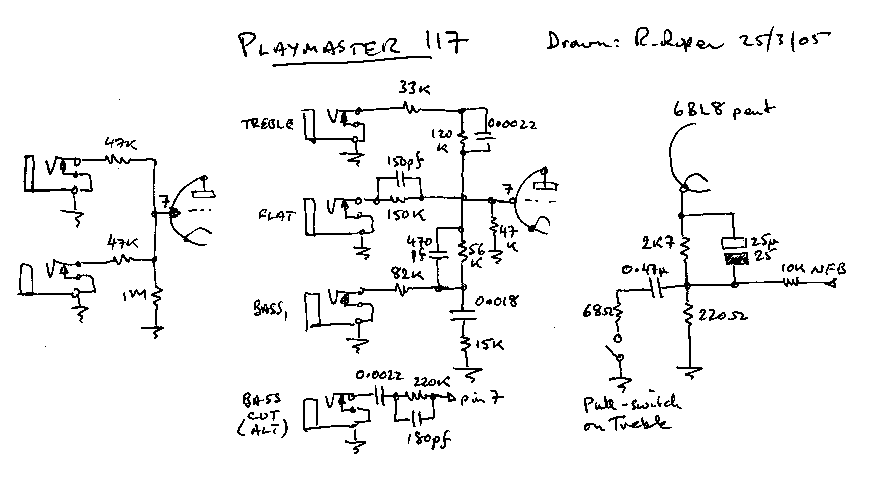 PLAYMASTER 117
Drawn: R. Roper 25/3/05
33K
6BL8 pent
TREBLE
120
K
0.0022
47K
150pf
7
7
FLAT
150K
47
K
2K7
25µ
25
47K
470
pf
56
K
0.47µ
10K NFB
82K
1M
0.018
68Ω
220Ω
BASS,
15K
0.0022
220K
BASS
CUT
(ALT)
pin 7
180pf
Pull-switch
on Treble